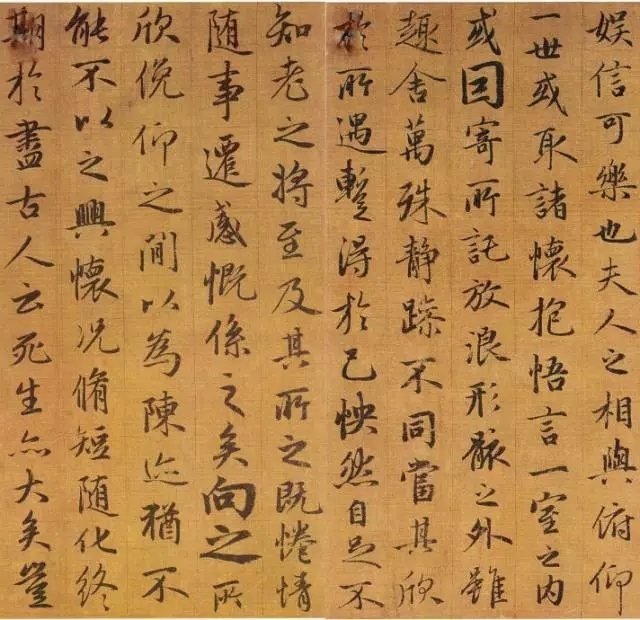 娱信可樂也夫人之相與俯仰
一世或取諸懷抱悟言一室之內
或因寄所託放浪形骸之外雖
趣舍萬殊静躁不同當其欣
於所遇蹔得於己怏然自足不
知老之將至及其所之既惓情
随事遷感慨係之矣向之所
欣俛仰之閒以為陳迹猶不
能不以之興懷況脩短随化終
期於盡古人云死生亦大矣豈